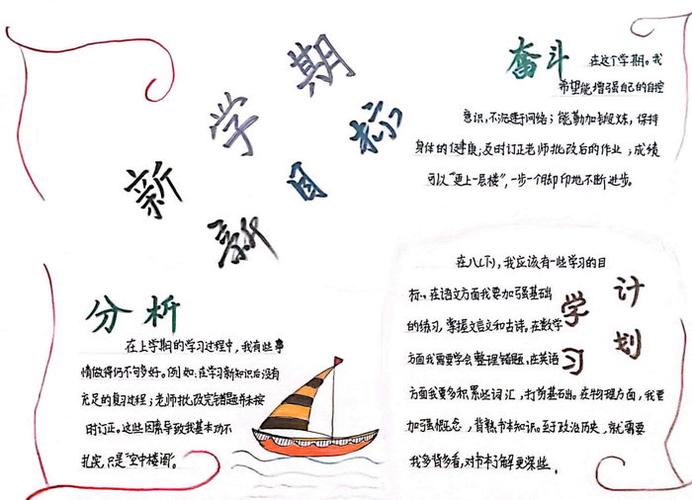 新学期
新目标
奋斗
在这个学期。我
希望能增强自己的自控
意识，不沉迷于网络；能勤加锻炼，保持
身体的健康；及时订正老师批改后的作业；成绩
可以“更上一层楼”，一步一个脚印地不断进步。
分析
在上学期的学习过程中，我有些事
情做得仍不够多好。例如：在学习新知识后没有
充足的复习过程；老师批改完错题并未按
时订正。这些因素导致我基本功不
扎实，只是“空中楼阁”。
学习
计划
在八（下），我应该有一些学习的目
标、在语文方面我要加强基础
的练习，掌握文言文和古诗。在数学
方面我需要学会整理错题，在英语
方面我要多积累些词汇，打夯基础。在物理方面，我要
加强概念，背熟书本知识。至于政治历史，就需要
我多背多看，对书本了解更深些。